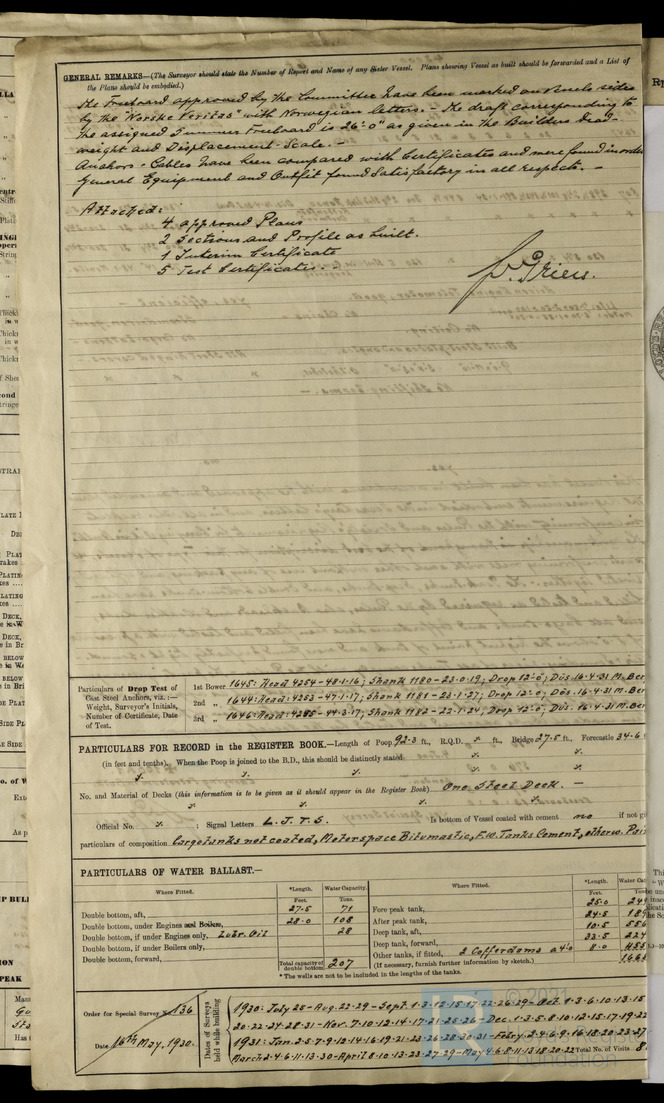 GENERAL REMARKS—(The Surveyor should state the Number of Report and Name of any Sister Vessel. Plans showing Vessel as built should be forwarded and a List of
the Plans should be embodied.)
The Freeboard approved by the Committee have been marked on Vessels sides
by the "Norske Veritas" with Norwegian letters. - The draft corresponding to
the assigned Summer Freeboard is 26'-0" as given in the Builders Dead-
weight and Displacement Scale. -
Anchors & Cables have been compared with Certificates and were found in order
General Equipment and Outfit found Satisfactory in all respects. -
Attached:
4 approved Plans
2 Sections and Profile as built.
1 Interim Certificate
5 Test Certificates. -
Particulars of Drop Test of
Cast Steel Anchors, viz.:—
Weight, Surveyor's Initials,
Number of Certificate, Date
of Test.
1st Bower 1645: Head 4254-48-1-16; Shank 1180-23-0-19; Drop 12'-0; Düs. 16.4.31 M. Ber
2nd „ 1644: Head: 4253-47-1-17; Shank 1181-23-1-27; Drop 12'-0; Düs. 16.4.31 M. Ber
3rd „ 1646: Head: 4285-44-3-17; Shank 1182-22-1-24, Drop 12'-0; Düs. 16.4.31 M. Ber
PARTICULARS FOR RECORD in the REGISTER BOOK.—Length of Poop 92.3 ft., R.Q.D. ft., Bridge 27.5 ft., Forecastle 34.6
(in feet and tenths). When the Poop is joined to the B.D., this should be distinctly stated
No. and Material of Decks (this information is to be given as it should appear in the Register Book) One Steel Deck. -
Official No. ; Signal Letters L.J.T.S. Is bottom of Vessel coated with cement no if not gi
particulars of composition Cargotanks not coated, Motorspace Bitumastic, F.W. Tanks Cement, otherw. Pai
PARTICULARS OF WATER BALLAST.—
Where Fitted. *Length. Water Capacity. Where Fitted. *Length. Water Ca
Feet. Tons. Feet. Ton
Double bottom, aft, 27.5 71 Fore peak tank, 25.0 24
Double bottom, under Engines and Boilers, 28.0 108 After peak tank, 24.5 189
Double bottom, if under Engines only, Lubr. Oil 28 Deep tank, aft, 10.5 556
Double bottom, if under Boilers only, Deep tank, forward, 33.5 224
Double bottom, forward, Other tanks, if fitted, 2 Cofferdams a 4.0 8.0 455
Total capacity of double bottom 207 (If necessary, furnish further information by sketch.)
* The wells are not to be included in the lengths of the tanks.
Order for Special Survey No. 136
Date 16th May, 1930.
Dates of Surveys held while building
1930: July 25 - Aug. 22.29 - Sept. 1.3.12.15.17.22.26.29 - Oct. 1.3.6.10.13.15
20.22.24.28.31 - Nov. 7.10.12.14.17.21.25.26 - Dec. 1.3.5.8.10.12.15.17.19.22
1931: Jan. 2.5.7.9.12.14.16.19.21.23.26.28.30.31 - Febry. 2.4.6.9.16.18.20.23.27
March 2.4.6.11.13.30 - April 8.10.13.23.27.29 - May 4.6.8.11.13.18.20.22 Total No. of Visits 8
© 2021
Foundation